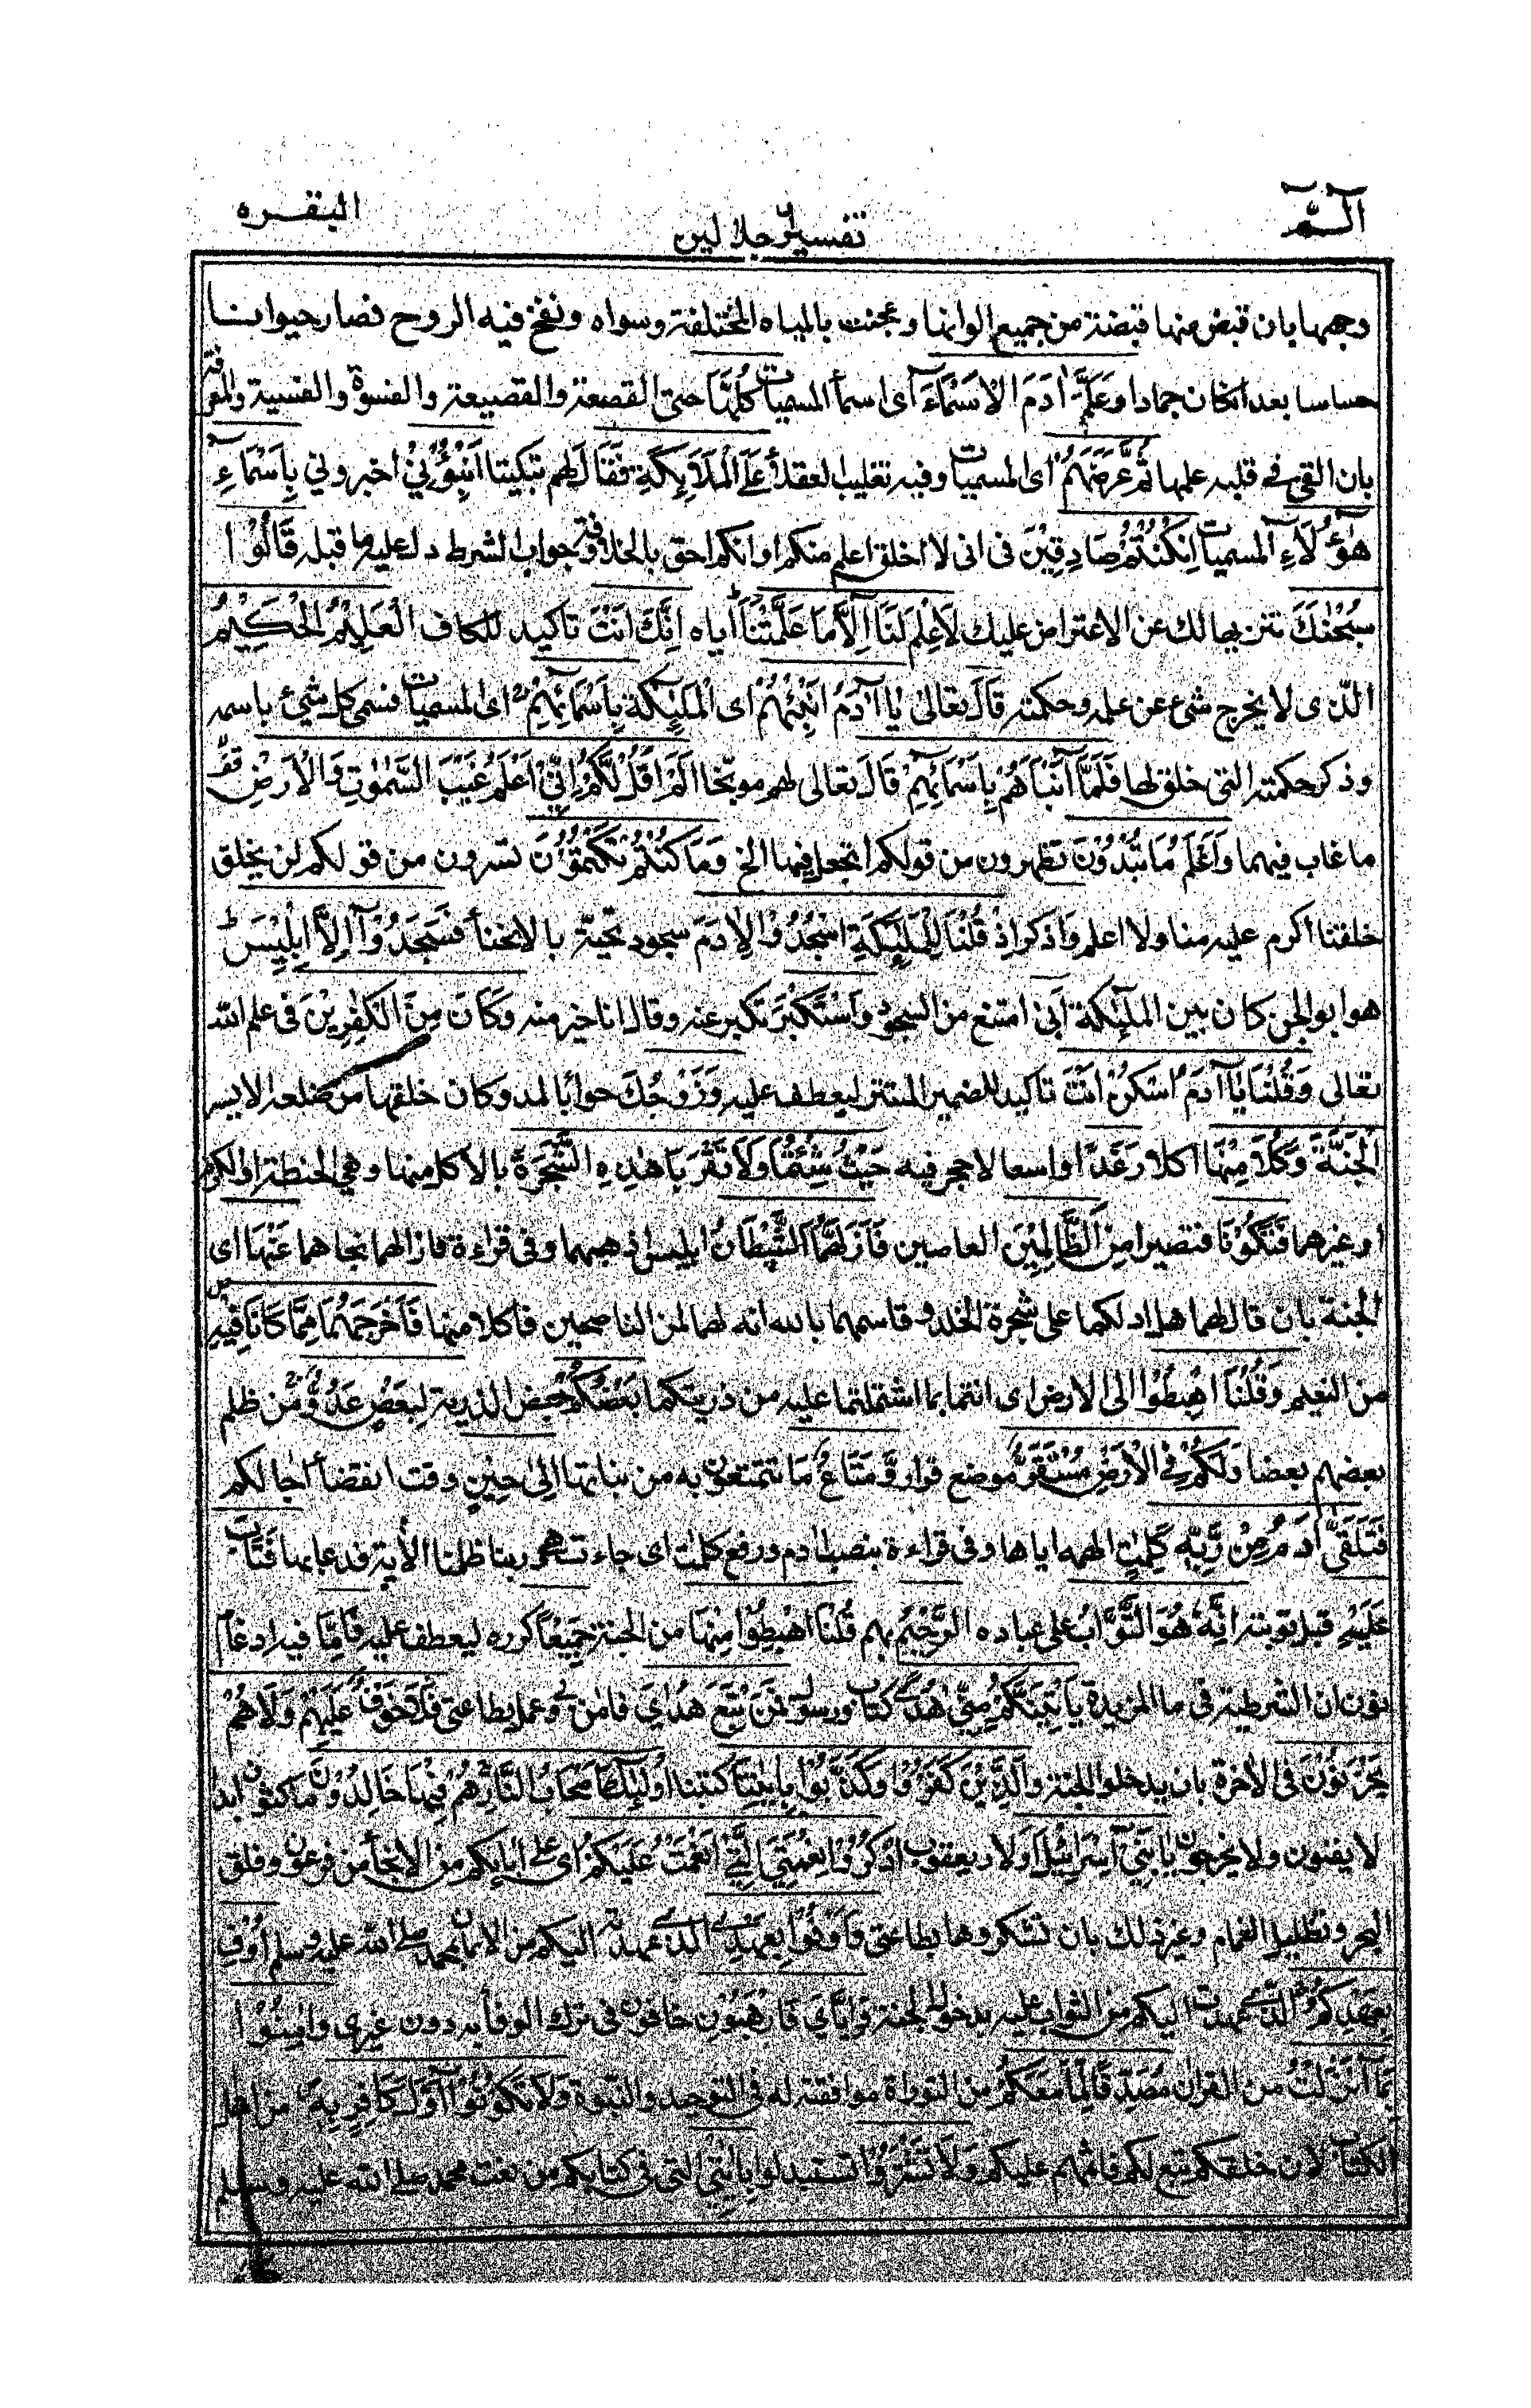 الٓــمّٓ تفسير جلالين البقــره
وجهها بان قبض منها قبضة من جميع الوانها وعجنت بالمياه المختلفة وسواه ونفخ فيه الروح فصار حيوانــا
حساسا بعد ان كان جمادا وَعَلَّمَ اٰدَمَ الْاَسْمَآءَ اى اسمأ المسميات كُلَّهَا حتى القصعة والقصيعة والفسوة والفسية والمغرفة
بان القى في قلبه علمها ثُمَّ عَرَضَهُمْ اى المسميات وفيه تغليب العقلأ عَلَى الْمَلٰٓئِكَةِ فَقَالَ لهم تبكيتا اَنْبِئُوْنِيْ اخبروني بِاَسْمَآءِ
هٰٓؤُلَآءِ المسميات اِنْ كُنْتُمْ صَادِقِيْنَ فى انى لا اخلق اعلم منكم او انكم احق بالخلافة وجواب الشرط دل عليه ما قبله قَالُوْا
سُبْحٰنَكَ تنزيها لك عن الاعتراض عليك لَا عِلْمَ لَنَآ اِلَّا مَا عَلَّمْتَنَا اياه اِنَّكَ اَنْتَ تاكيد للكاف الْعَلِيْمُ الْحَكِيْمُ
الذى لا يخرج شئ عن علمه وحكمته قَالَ تعالىٰ يَا اٰدَمُ اَنْبِئْهُمْ اى الْمَلٰٓئِكَة بِاَسْمَآئِهِمْ اى المسميات فسمى كل شئ باسمه
وذكر حكمته التى خلق لها فَلَمَّآ اَنْبَاَهُمْ بِاَسْمَآئِهِمْ قَالَ تعالى لهم موبخا اَلَمْ اَقُلْ لَّكُمْ اِنِّيْ اَعْلَمُ غَيْبَ السَّمٰوٰتِ وَالْاَرْضِ
ما غاب فيهما وَاَعْلَمُ مَا تُبْدُوْنَ تظهرون من قولكم اتجعل فيها الخ وَمَا كُنْتُمْ تَكْتُمُوْنَ تسرون من قولكم لن يخلق
خلقنا اكرم عليه منا ولا اعلم وَاذكر اِذْ قُلْنَا لِلْمَلٰٓئِكَةِ اسْجُدُوْا لِاٰدَمَ سجود تحية بالانحنأ فَسَجَدُوْٓا اِلَّآ اِبْلِيْسَ
هو ابو الجن كان بين الملٰٓئكة اَبٰى امتنع من السجود وَاسْتَكْبَرَ تكبر عنه وقال انا خير منه وَكَانَ مِنَ الْكٰفِرِيْنَ فى علم الله
تعالى وَقُلْنَا يَا اٰدَمُ اسْكُنْ اَنْتَ تاكيد للضمير المستتر ليعطف عليه وَزَوْجُكَ حوأ بالمد وكان خلقها من ضلعه الايسر
الْجَنَّةَ وَكُلَا مِنْهَا اكلا رَغَدًا واسعا لا حجر فيه حَيْثُ شِئْتُمَا وَلَا تَقْرَبَا هٰذِهِ الشَّجَرَةَ بالاكل منها وهي الحنطة او الكرم
او غيرهما فَتَكُوْنَا فتصيرا مِنَ الظَّالِمِيْنَ العاصين فَاَزَلَّهُمَا الشَّيْطَانُ ابليس اذهبهما وفى قراءة فازالهما نحاهما عَنْهَا اى
الجنة بان قال لهما هل ادلكما على شجرة الخلد وقاسمهما بالله انه لهما لمن الناصحين فأكلا منها فَاَخْرَجَهُمَا مِمَّا كَانَا فِيْهِ
من النعيم وَقُلْنَا اهْبِطُوْا الى الارض اى انتما بما اشتملتما عليه من ذريتكما بَعْضُكُمْ بعض الذرية لِبَعْضٍ عَدُوٌّ من ظلم
بعضهم بعضا وَلَكُمْ فِي الْاَرْضِ مُسْتَقَرٌّ موضع قرار وَّمَتَاعٌ ما تتمتعون به من نباتها اِلىٰ حِيْنٍ وقت انقضأ اجالكم
فَتَلَقّٰى اٰدَمُ مِنْ رَّبِّه كَلِمٰتٍ الهمه اياها وفى قراءة بنصب ادم ورفع كلمت اى جاءته هى ربنا ظلمنا الأية فدعا بها فَتَابَ
عَلَيْهِ قبل توبته اِنَّهٗ هُوَ التَّوَّابُ على عباده الرَّحِيْمُ بهم قُلْنَا اهْبِطُوْا مِنْهَا من الجنة جَمِيْعًا كرره ليعطف عليه فَاِمَّا فيه ادغام
نون ان الشرطية فى ما المزيدة يَاْتِيَنَّكُمْ مِنِّيْ هُدًى كتاب ورسول فَمَنْ تَبِعَ هُدَايَ فامن بى وعمل بطاعتى فَلَا خَوْفٌ عَلَيْهِمْ وَلَا هُمْ
يَحْزَنُوْنَ فى الأخرة بان يدخلوا الجنة وَالَّذِيْنَ كَفَرُوْا وَكَذَّبُوْا بِاٰيٰتِنَا كتبنا اُولٰٓئِكَ اَصْحَابُ النَّارِ هُمْ فِيْهَا خَالِدُوْنَ ماكثون ابدا
لا يفنون ولا يخرجون يَا بَنِيْٓ اِسْرَآئِيْلَ اولاد يعقوب اذْكُرُوْا نِعْمَتِيَ الَّتِيْٓ اَنْعَمْتُ عَلَيْكُمْ اى على اٰبائكم من الانجأ من فرعون وفلق
البحر وتظليل الغمام وغير ذلك بان تشكروها بطاعتى وَاَوْفُوْا بِعَهْدِيْٓ الذى عهدته اليكم من الايمان بمحمد صلى الله عليه وسلم اُوْفِ
بِعَهْدِكُمْ الذى عهدت اليكم من الثواب عليه بدخول الجنة وَاِيَّايَ فَارْهَبُوْنِ خافون فى ترك الوفأ به دون غيرى وَاٰمِنُوْا
بِمَآ اَنْزَلْتُ من القران مُصَدِّقًا لِّمَا مَعَكُمْ من التوراة موافقته له فى التوحيد والنبوة وَلَا تَكُوْنُوْٓا اَوَّلَ كَافِرٍ بِهٖ من اهل
الكتاب لان خلفكم تبع لكم فاثمهم عليكم وَلَا تَشْتَرُوْا تستبدلوا بِاٰيٰتِيْ التى فى كتابكم من نعت محمد صلى الله عليه وسلم